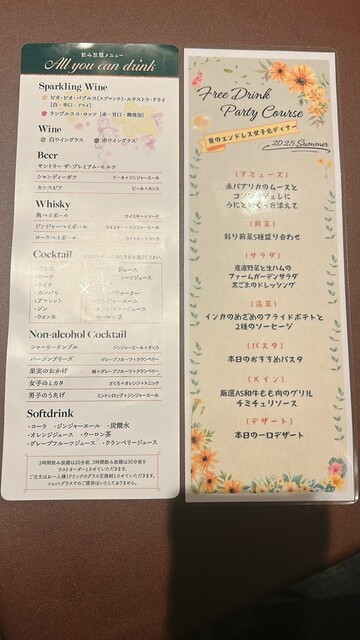 飲み放題メニュー
All you can drink
Sparkling Wine
Wine
白ワイングラス
赤ワイングラス
Beer
サントリー ザ・プレミアム・モルツ
シャンディーガフ ビール+ジンジャーエール
カシスビア ビール+カシス
Whisky
角ハイボール ウイスキー+ソーダ
ジンジャーハイボール ウイスキー+ジンジャーエール
コークハイボール ウイスキー+コーラ
Cocktail
・カシス
・ピーチ
・ライチ
・カンパリ
・アマレット
・ジン
・ウォッカ
Non-alcohol Cocktail
シャーリーテンプル ジンジャーエール+ざくろ
バージンブリーズ グレープフルーツ+クランベリー
果実のおかげ 桃+グレープフルーツ+クランベリー
女子のミカタ ざくろ+オレンジ+トニック
男子のうたげ ミントシロップ+ジンジャーエール
Softdrink
・コーラ ・ジンジャーエール ・炭酸水
・オレンジジュース ・ウーロン茶
・グレープフルーツジュース ・クランベリージュース
2時間飲み放題は20分前、3時間飲み放題は30分前を
ラストオーダーとさせていただきます。
ご注文はお一人様1ドリンクのグラス交換制とさせていただきます。
ショットグラスでのご提供はいたしておりません。
Free Drink
Party Course
夏のエンドレス女子会ディナー
2025 Summer
[アミューズ]
赤パプリカのムースと
コンソメジュレに
[前菜]
彩り前菜5種盛り合わせ
[サラダ]
産直野菜と生ハムの
ファームガーデンサラダ
黒ごまのドレッシング
[温菜]
インカのめざめのフライドポテトと
2種のソーセージ
[パスタ]
本日のおすすめパスタ
[メイン]
厳選A5和牛もも肉のグリル
チミチュリソース
[デザート]
本日の一口デザート